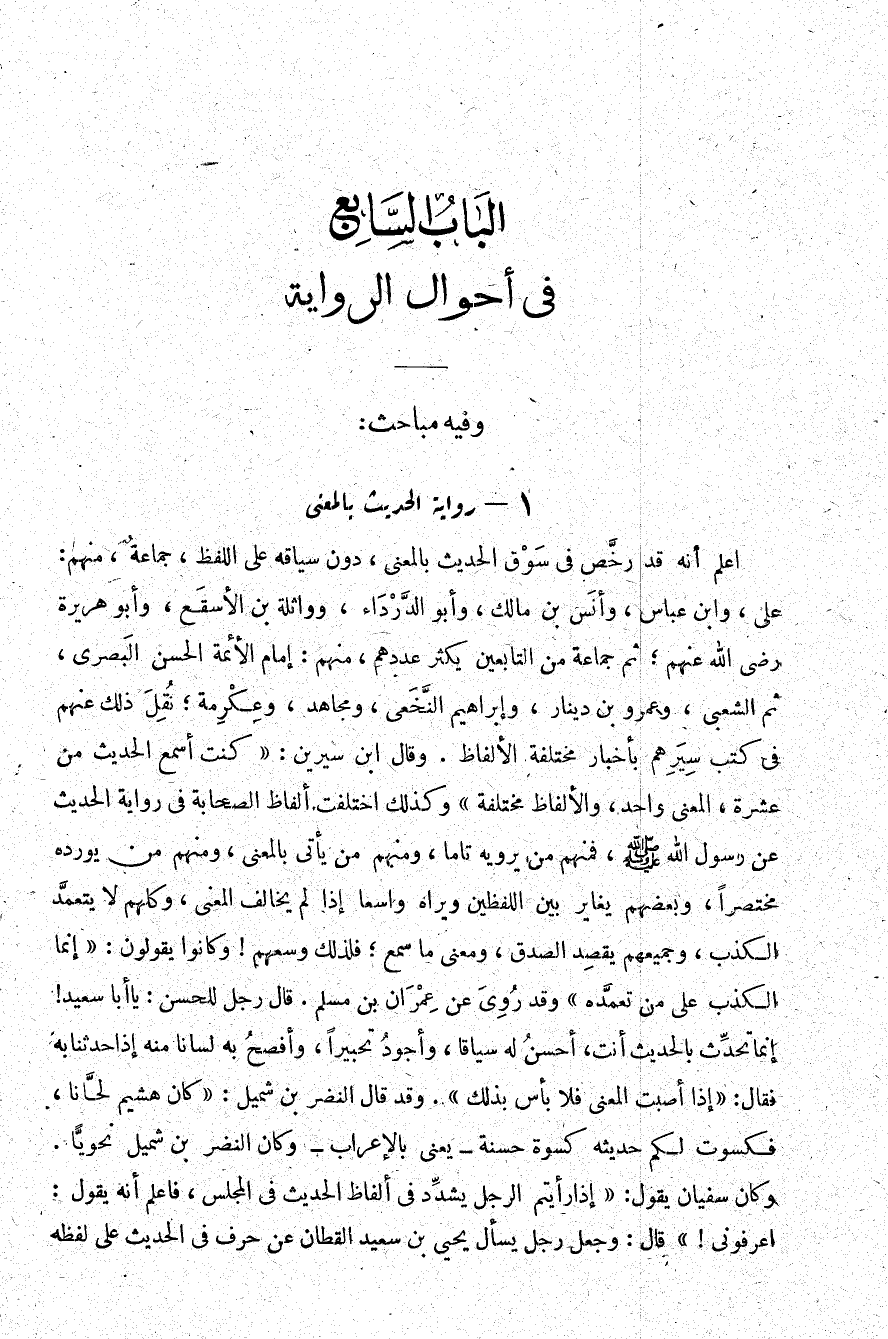 البَابُ السَّابِع
فى أحوال الرواية
وفيه مباحث:
١ – رواية الحديث بالمعنى
اعلم أنه قد رخَّص فى سَوْق الحديث بالمعنى ، دون سياقه على اللفظ ، جماعةٌ ، منهم:
على ، وابن عباس ، وأنَس بن مالك ، وأبو الدَّرْدَاء ، وواثلة بن الأسقَع ، وأبو هريرة
رضى الله عنهم ؛ ثم جماعة من التابعين يكثر عددهم ، منهم : إمام الأئمة الحسن البَصرى ،
ثم الشعبى ، وعمرو بن دينار ، وإبراهيم النَّخَعى ، ومجاهد ، وعِكْرِمة ؛ نُقِلَ ذلك عنهم
فى كتب سِيَرِهم بأخبار مختلفة الألفاظ . وقال ابن سيرين : « كنت أسمع الحديث من
عشرة ، المعنى واحد ، والألفاظ مختلفة » وكذلك اختلفت ألفاظ الصحابة فى رواية الحديث
عن رسول الله ﷺ ، فمنهم من يرويه تاما ، ومنهم من يأتى بالمعنى ، ومنهم من يورده
مختصراً ، وبعضهم يغاير بين اللفظين ويراه واسعا إذا لم يخالف المعنى ، وكلهم لا يتعمَّد
الكذب ، وجميعهم يقصد الصدق ، ومعنى ما سمع ؛ فلذلك وسعهم ! وكانوا يقولون : « إنما
الكذب على من تعمَّده » وقد رُوِىَ عن عِمْرَان بن مسلم . قال رجل للحسن : ياأبا سعيد!
إنماتحدِّث بالحديث أنت، أحسنُ له سياقا ، وأجودُ تحبيراً ، وأفصحُ به لسانا منه إذاحدثنابه
فقال: «إذا أصبت المعنى فلا بأس بذلك » . وقد قال النضر بن شميل : «كان هشيم لحَّانا ،
فكسوت لكم حديثه كسوة حسنة – يعنى بالإعراب – وكان النضر بن شميل نحويًّا .
وكان سفيان يقول: « إذارأيتم الرجل يشدِّد فى ألفاظ الحديث فى المجلس ، فاعلم أنه يقول :
اعرفونى ! » قال : وجعل رجل يسأل يحيى بن سعيد القطان عن حرف فى الحديث على لفظه